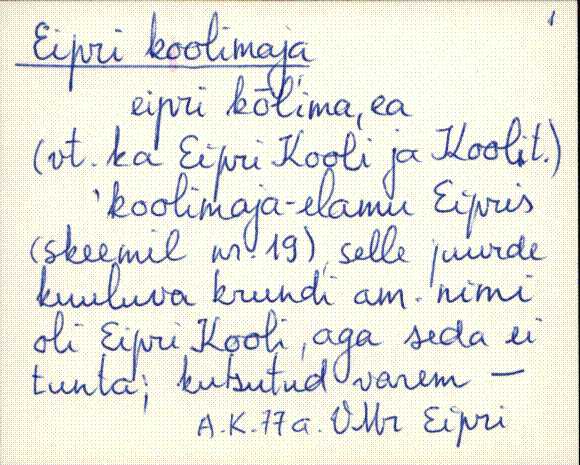 1
Eipri koolimaja
eipri kōlima, ea
(vt. ka Eipri Kooli ja Koolit.)
'koolimaja-elamu Eipris
(skeemil nr. 19), selle juurde
kuuluva krundi am. nimi
oli Eipri Kooli, aga seda ei
tunta; kutsutud varem —
A.K. 77 a. VMr Eipri